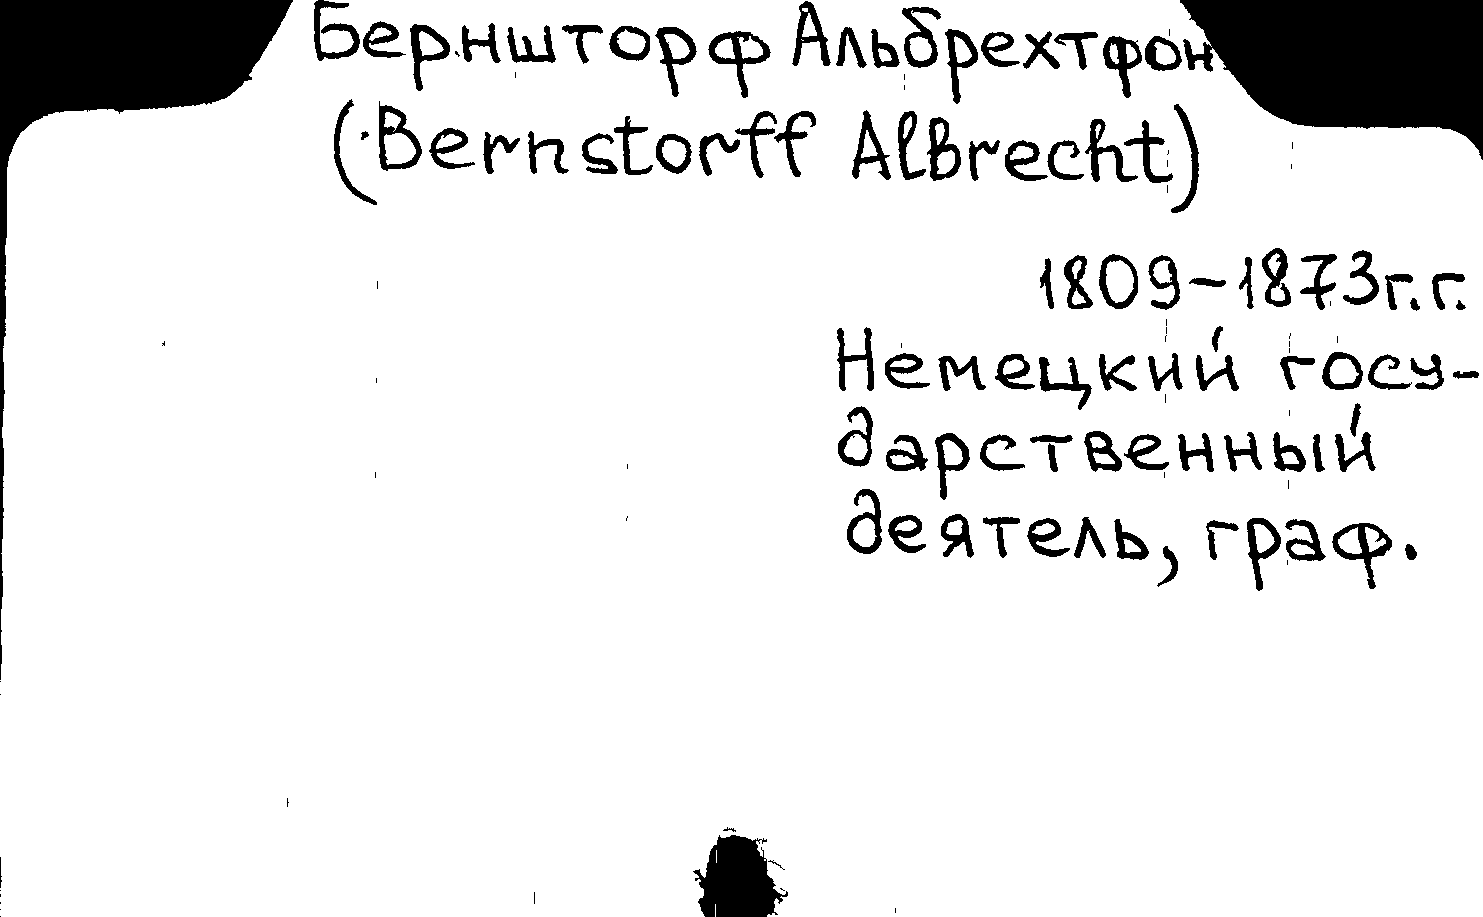 Бернсторф Альбрехт фон
(Bernstorff Albrecht)
1809-1873г.г.
Немецкий госу-
дарственный
деятель, граф.